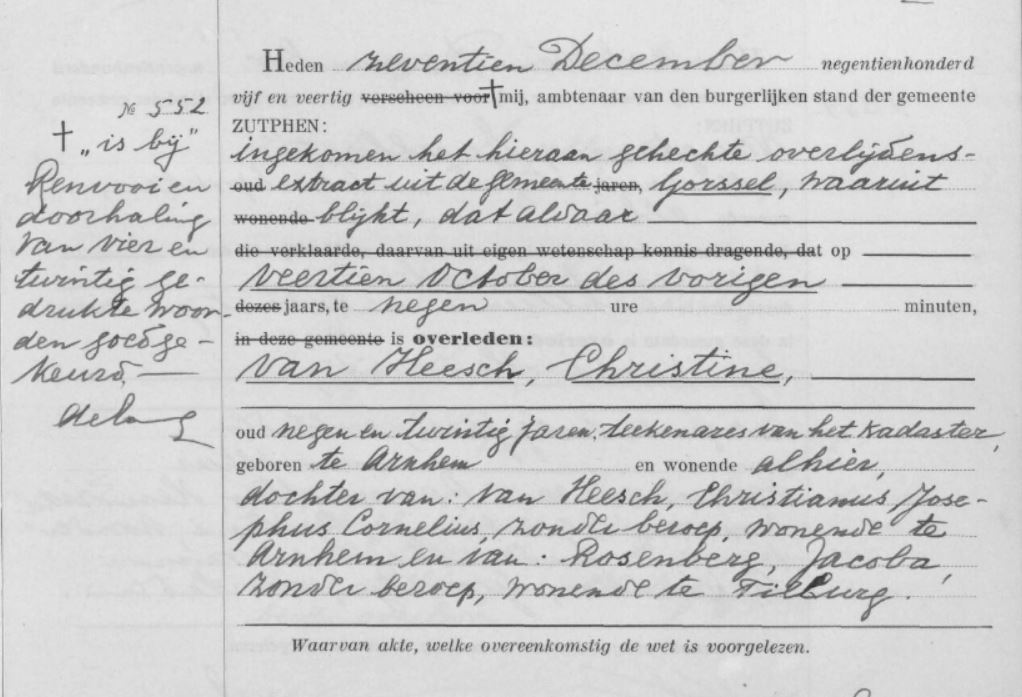 Heden zeventien December negentienhonderd
vijf en veertig verscheen voor † mij, ambtenaar van den burgerlijken stand der gemeente
ZUTPHEN:
ingekomen het hieraan gehechte overlijdens-
oud extract uit de gemeente jaren, Gorssel, waaruit
wonende blijkt, dat aldaar
die verklaarde, daarvan uit eigen wetenschap kennis dragende, dat op
veertien October des vorigen
dezes jaars, te negen ure minuten,
in deze gemeente is overleden:
van Heesch, Christine,
oud negen en twintig jaren, teekenares van het Kadaster,
geboren te Arnhem en wonende alhier,
dochter van: van Heesch, Christianus Jose-
phus Cornelius, zonder beroep, wonende te
Arnhem en van: Rosenberg, Jacoba,
zonder beroep, wonende te Tilburg.
Waarvan akte, welke overeenkomstig de wet is voorgelezen.
№ 552
† „is bij"
Renvooi en
doorhaling
van vier en
twintig ge-
drukte woor-
den goedge-
keurd,